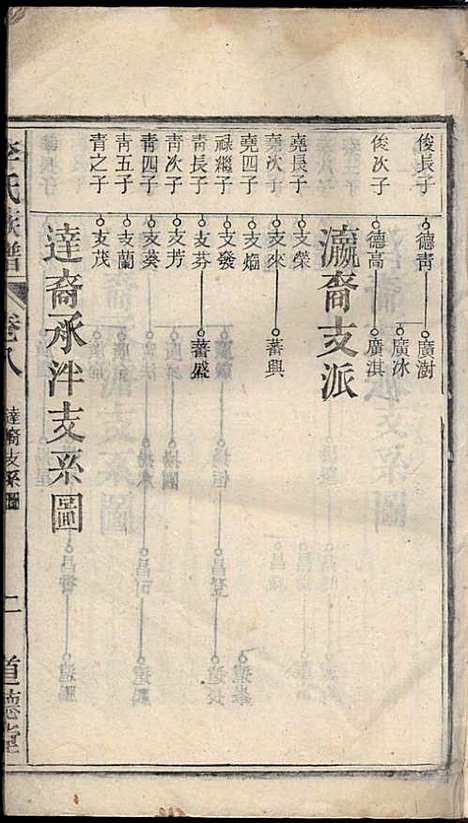 俊長子 德青 廣澍
廣冰
俊次子 德高 廣淇
瀛裔支派
堯長子 支榮
堯次子 支來 蕃興
堯四子 支焔
祿繼子 支發
青長子 支芬 蕃盛
青次子 支芳
青四子 支葵
青五子 支蘭
青之子 支茂
達裔承泮支系圖
李氏族譜 卷八 達裔支系圖 二 道德堂